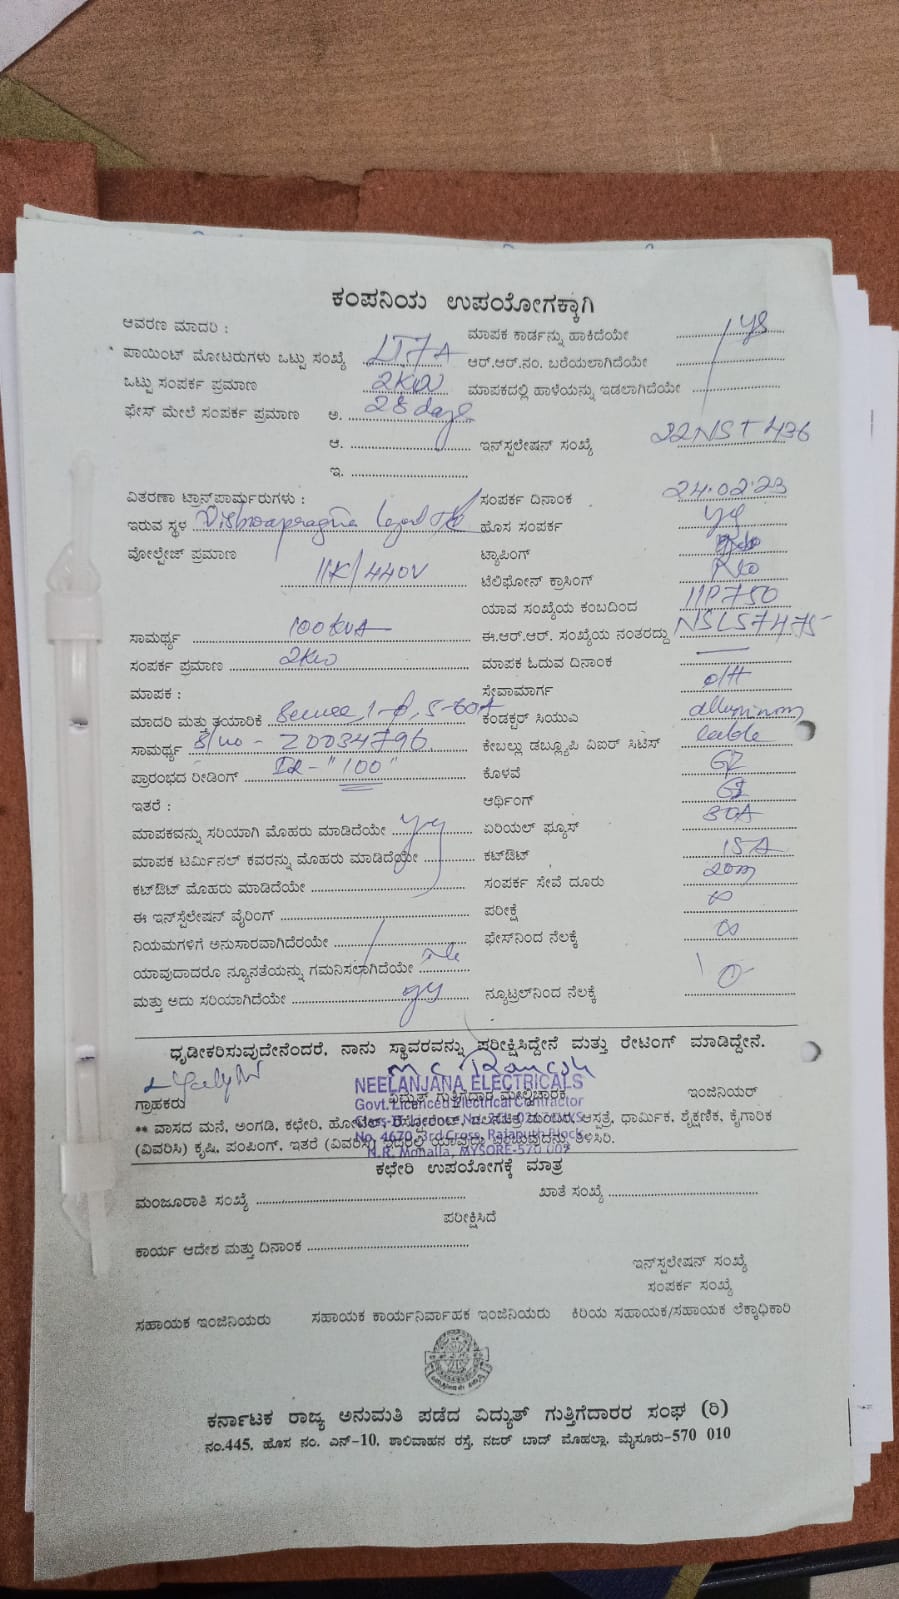 ಕಂಪನಿಯ ಉಪಯೋಗಕ್ಕಾಗಿ
ಆವರಣ ಮಾದರಿ :
ಮಾಪಕ ಕಾರ್ಡನ್ನು ಹಾಕಿದೆಯೇ yes
ಪಾಯಿಂಟ್ ಮೋಟರುಗಳು ಒಟ್ಟು ಸಂಖ್ಯೆ LT7A
ಆರ್.ಆರ್.ನಂ. ಬರೆಯಲಾಗಿದೆಯೇ
ಒಟ್ಟು ಸಂಪರ್ಕ ಪ್ರಮಾಣ 2KW
ಮಾಪಕದಲ್ಲಿ ಹಾಳೆಯನ್ನು ಇಡಲಾಗಿದೆಯೇ
ಫೇಸ್ ಮೇಲೆ ಸಂಪರ್ಕ ಪ್ರಮಾಣ ಅ. 28 days
ಆ.
ಇನ್ಸ್ಟಲೇಷನ್ ಸಂಖ್ಯೆ 22NST436
ಇ.
ವಿತರಣಾ ಟ್ರಾನ್ಸ್‌ಪಾರ್ಮರುಗಳು :
ಸಂಪರ್ಕ ದಿನಾಂಕ 24.02.23
ಇರುವ ಸ್ಥಳ
ಹೊಸ ಸಂಪರ್ಕ yes
ವೋಲ್ಟೇಜ್ ಪ್ರಮಾಣ 11K/440V
ಟ್ಯಾಪಿಂಗ್
ಟೆಲಿಫೋನ್ ಕ್ರಾಸಿಂಗ್ No
ಯಾವ ಸಂಖ್ಯೆಯ ಕಂಬದಿಂದ 11P750
ಸಾಮರ್ಥ್ಯ 100KVA
ಈ.ಆರ್.ಆರ್. ಸಂಖ್ಯೆಯ ನಂತರದ್ದು NSLS7475
ಸಂಪರ್ಕ ಪ್ರಮಾಣ 2KW
ಮಾಪಕ ಓದುವ ದಿನಾಂಕ —
ಮಾಪಕ :
ಸೇವಾಮಾರ್ಗ o/H
ಮಾದರಿ ಮತ್ತು ತಯಾರಿಕೆ 1-φ, 5-60A
ಕಂಡಕ್ಟರ್ ಸಿಯುವಿ alluminum
ಸಾಮರ್ಥ್ಯ S/no - 20034796
ಕೇಬಲ್ಲು ಡಬ್ಲ್ಯೂಪಿ ವಿಐರ್ ಸಿಟಿಸ್ cable
ಪ್ರಾರಂಭದ ರೀಡಿಂಗ್ IR - "100"
ಕೊಳವೆ GI
ಇತರೆ :
ಆರ್ಥಿಂಗ್ GI
ಮಾಪಕವನ್ನು ಸರಿಯಾಗಿ ಮೊಹರು ಮಾಡಿದೆಯೇ yes
ಏರಿಯಲ್ ಫ್ಯೂಸ್ 30A
ಮಾಪಕ ಟರ್ಮಿನಲ್ ಕವರನ್ನು ಮೊಹರು ಮಾಡಿದೆಯೇ
ಕಟ್‌ಔಟ್ 15A
ಕಟ್‌ಔಟ್ ಮೊಹರು ಮಾಡಿದೆಯೇ
ಸಂಪರ್ಕ ಸೇವೆ ದೂರು 20m
ಈ ಇನ್‌ಸ್ಟೆಲೇಷನ್ ವೈರಿಂಗ್
ಪರೀಕ್ಷೆ ∞
ನಿಯಮಗಳಿಗೆ ಅನುಸಾರವಾಗಿದೆರಯೇ
ಫೇಸ್‌ನಿಂದ ನೆಲಕ್ಕೆ ∞
ಯಾವುದಾದರೂ ನ್ಯೂನತೆಯನ್ನು ಗಮನಿಸಲಾಗಿದೆಯೇ
ಮತ್ತು ಅದು ಸರಿಯಾಗಿದೆಯೇ yes
ನ್ಯೂಟ್ರಲ್‌ನಿಂದ ನೆಲಕ್ಕೆ 0
ಧೃಡೀಕರಿಸುವುದೇನೆಂದರೆ, ನಾನು ಸ್ಥಾವರವನ್ನು ಪರೀಕ್ಷಿಸಿದ್ದೇನೆ ಮತ್ತು ರೇಟಿಂಗ್ ಮಾಡಿದ್ದೇನೆ.
NEELANJANA ELECTRICALS
ಗ್ರಾಹಕರು
ವಿದ್ಯುತ್ ಗುತ್ತಿಗೆದಾರ ಮೇಲ್ವಿಚಾರಕ
ಇಂಜಿನಿಯರ್
Govt. Licenced Electrical Contractor
** ವಾಸದ ಮನೆ, ಅಂಗಡಿ, ಕಛೇರಿ, ಹೋಟೆಲ್, ರೆಸ್ಟೋರೆಂಟ್, ಚಲನಚಿತ್ರ ಮಂದಿರ, ಆಸ್ಪತ್ರೆ, ಧಾರ್ಮಿಕ, ಶೈಕ್ಷಣಿಕ, ಕೈಗಾರಿಕೆ
No. 4670, 3rd Cross,
(ವಿವರಿಸಿ) ಕೃಷಿ, ಪಂಪಿಂಗ್, ಇತರೆ (ವಿವರಿಸಿ) ಇದರಲ್ಲಿ ಯಾವುದು ಎಂಬುವುದನ್ನು ತಿಳಿಸಿರಿ.
N.R. Mohalla, MYSORE-570 007
ಕಛೇರಿ ಉಪಯೋಗಕ್ಕೆ ಮಾತ್ರ
ಮಂಜೂರಾತಿ ಸಂಖ್ಯೆ
ಖಾತೆ ಸಂಖ್ಯೆ
ಪರೀಕ್ಷಿಸಿದೆ
ಕಾರ್ಯ ಆದೇಶ ಮತ್ತು ದಿನಾಂಕ
ಇನ್ಸ್ಟಲೇಷನ್ ಸಂಖ್ಯೆ
ಸಂಪರ್ಕ ಸಂಖ್ಯೆ
ಸಹಾಯಕ ಇಂಜಿನಿಯರು
ಸಹಾಯಕ ಕಾರ್ಯನಿರ್ವಾಹಕ ಇಂಜಿನಿಯರು
ಕಿರಿಯ ಸಹಾಯಕ/ಸಹಾಯಕ ಲೆಕ್ಕಾಧಿಕಾರಿ
ಕರ್ನಾಟಕ ರಾಜ್ಯ ಅನುಮತಿ ಪಡೆದ ವಿದ್ಯುತ್ ಗುತ್ತಿಗೆದಾರರ ಸಂಘ (ರಿ)
ನಂ.445, ಹೊಸ ನಂ. ಎನ್-10, ಶಾಲಿವಾಹನ ರಸ್ತೆ, ನಜರ್ ಬಾದ್ ಮೊಹಲ್ಲಾ, ಮೈಸೂರು-570 010